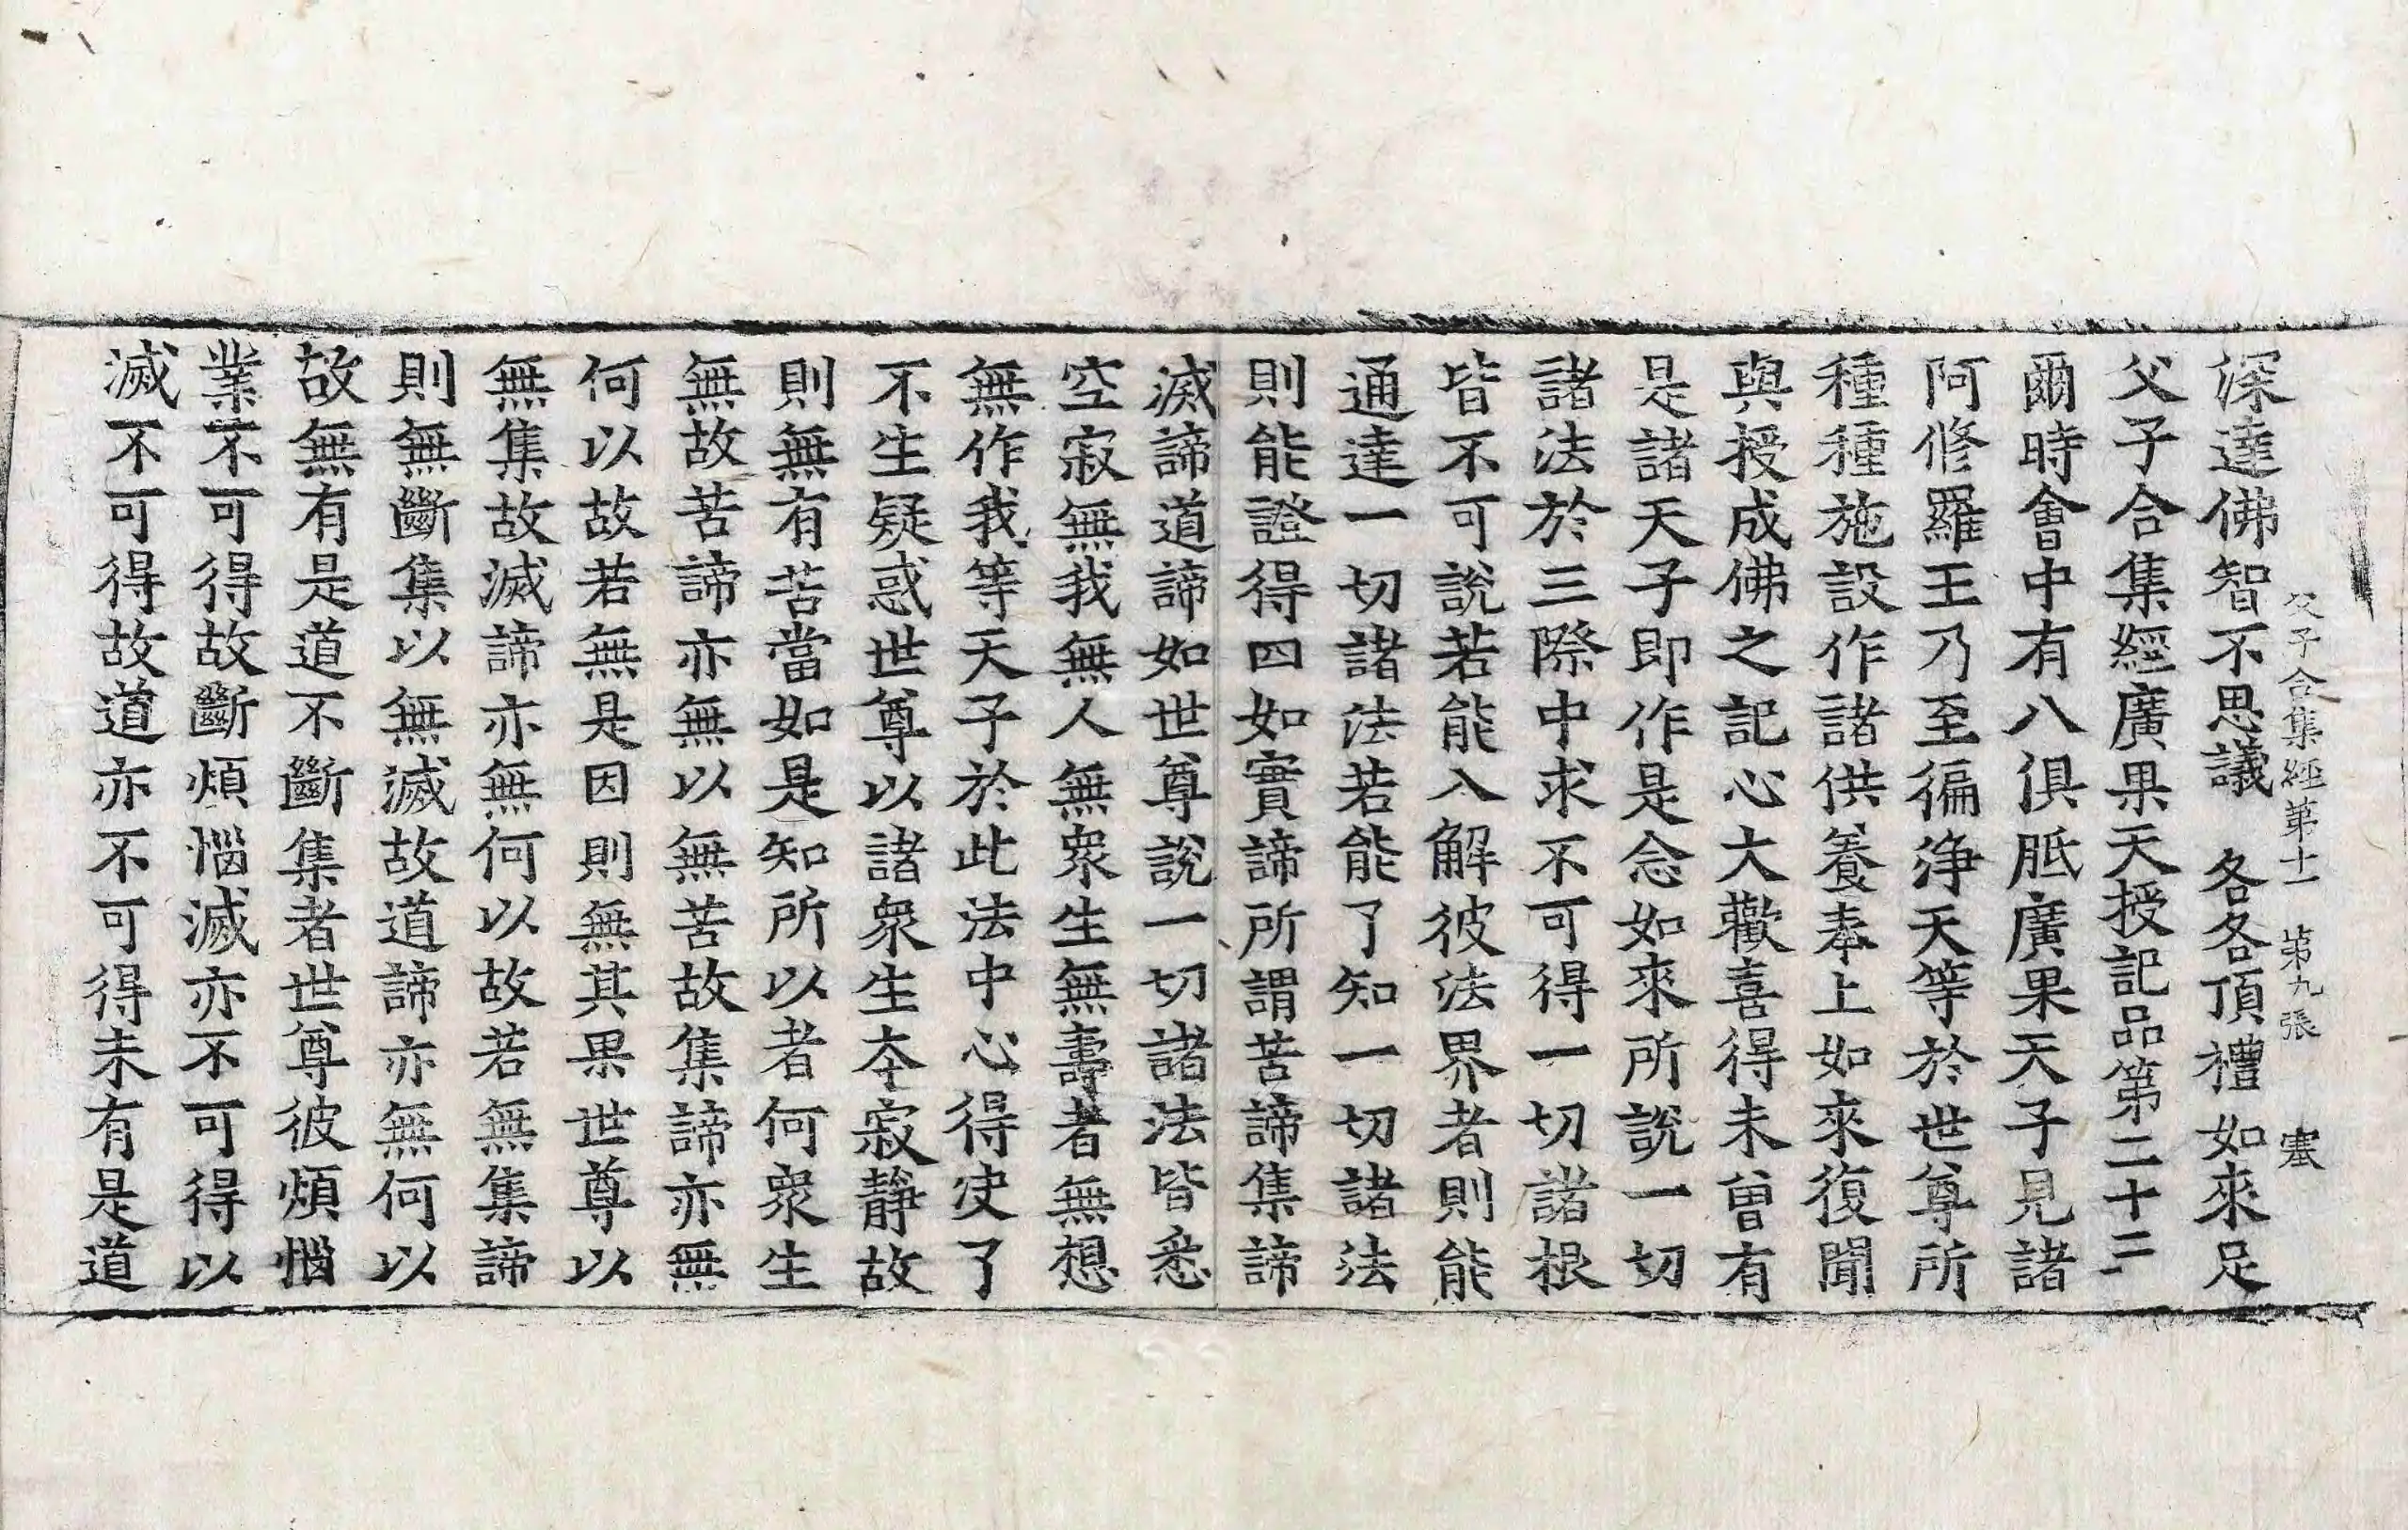 父子合集經第十一 第九張 塞
深達佛智不思議 各各頂禮如來足
父子合集經廣果天授記品第二十二
爾時會中有八俱胝廣果天子見諸
阿修羅王乃至徧淨天等於世尊所
種種施設作諸供養奉上如來復聞
與授成佛之記心大歡喜得未曾有
是諸天子即作是念如來所說一切
諸法於三際中求不可得一切諸根
皆不可說若能入解彼法界者則能
通達一切諸法若能了知一切諸法
則能證得四如實諦所謂苦諦集諦
滅諦道諦如世尊說一切諸法皆悉
空寂無我無人無眾生無壽者無想
無作我等天子於此法中心得決了
不生疑惑世尊以諸眾生本寂靜故
則無有苦當如是知所以者何眾生
無故苦諦亦無以無苦故集諦亦無
何以故若無是因則無其果世尊以
無集故滅諦亦無何以故若無集諦
則無斷集以無滅故道諦亦無何以
故無有是道不斷集者世尊彼煩惱
業不可得故斷煩惱滅亦不可得以
滅不可得故道亦不可得未有是道